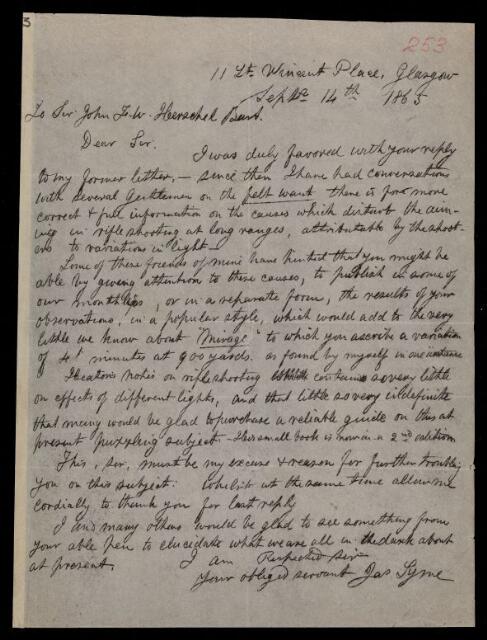 3
253
11 St. Vincent Place, Glasgow
Septr 14th 1865
To Sir John F. W. Herschel Bart.
Dear Sir.
I was duly favored with your reply
to my former letter, – since then I have had conversations
with several Gentlemen on the felt want there is for more
correct & full information on the causes which disturb the aim-
ing in rifle shooting at long ranges, attributable by the shoot-
ers to variations in light –
Some of these friends of mine have hinted that you might be
able by giving attention to these causes, to publish in some of
our monthlies, or in a separate form, the results of your
observations, in a popular style, which would add to the very
little we know about "Mirage" to which you ascribe a variation
of 4 minutes at 900 yards. as found by myself in one instance
Heaton's notes on rifle shooting contains so very little
on effects of different lights, and that little so very indefinite
that many would be glad to purchase a reliable guide on this at
present puzzling subject – His small book is now in a 2nd edition
This, Sir, must be my excuse & reason for further troubling
you on this subject: while at the same time allow me
cordially to thank you for last reply
I and many others would be glad to see something from
your able pen to elucidate what we are all in the dark about
at present
I am Respected Sir
Your obliged servant Jas Syme